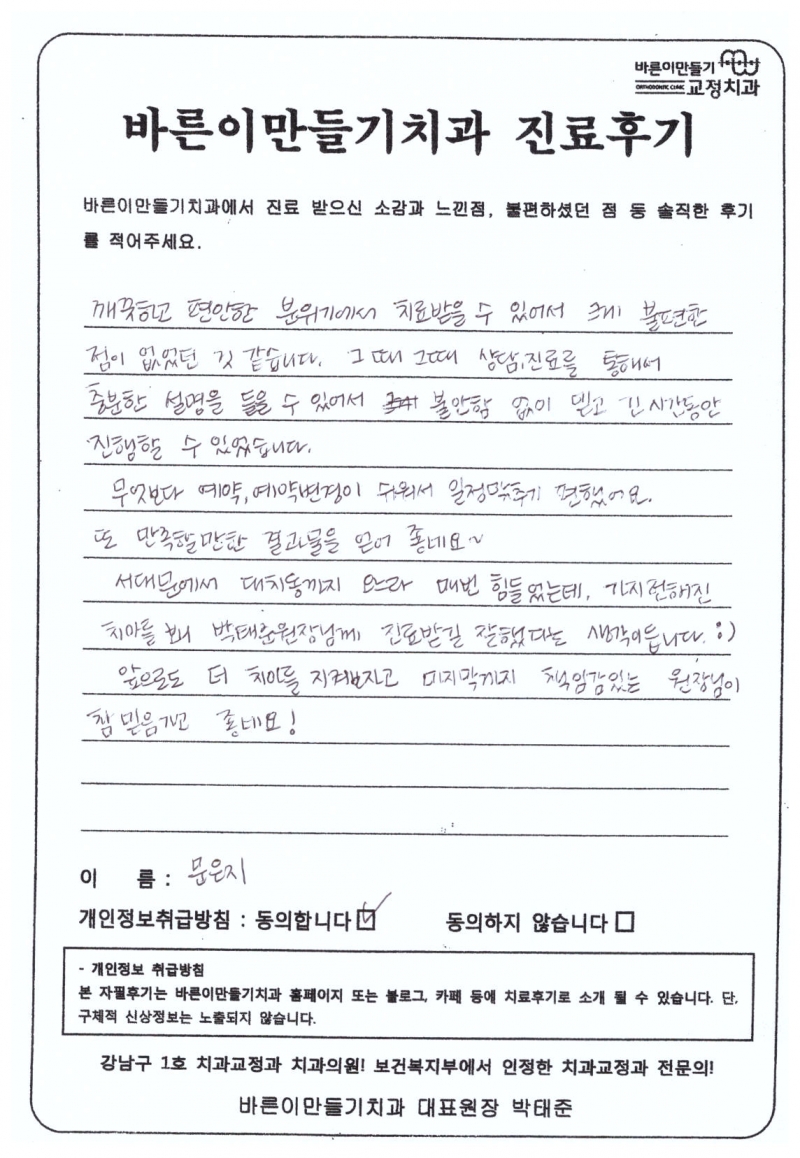 바른이만들기
ORTHODONTIC CLINIC 교정치과
바른이만들기치과 진료후기
바른이만들기치과에서 진료 받으신 소감과 느낀점, 불편하셨던 점 등 솔직한 후기
를 적어주세요.
깨끗하고 편안한 분위기에서 치료받을 수 있어서 크게 불편한
점이 없었던 것 같습니다. 그때 그때 상담, 진료를 통해서
충분한 설명을 들을 수 있어서 불안함 없이 믿고 긴 시간동안
진행할 수 있었습니다.
무엇보다 예약, 예약변경이 쉬워서 일정맞추기 편했어요.
또 만족할만한 결과물을 얻어 좋네요~
서대문에서 대치동까지 오느라 매번 힘들었는데, 가지런해진
치아를 보니 박태준원장님께 진료받길 잘했다는 생각이듭니다. :)
앞으로도 더 치아를 지켜보자고 마지막까지 책임감있는 원장님이
참 믿음가고 좋네요!
이 름 : 문은지
개인정보취급방침 : 동의합니다 ☑ 동의하지 않습니다 □
- 개인정보 취급방침
본 자필후기는 바른이만들기치과 홈페이지 또는 블로그, 카페 등에 치료후기로 소개 될 수 있습니다. 단,
구체적 신상정보는 노출되지 않습니다.
강남구 1호 치과교정과 치과의원! 보건복지부에서 인정한 치과교정과 전문의!
바른이만들기치과 대표원장 박태준